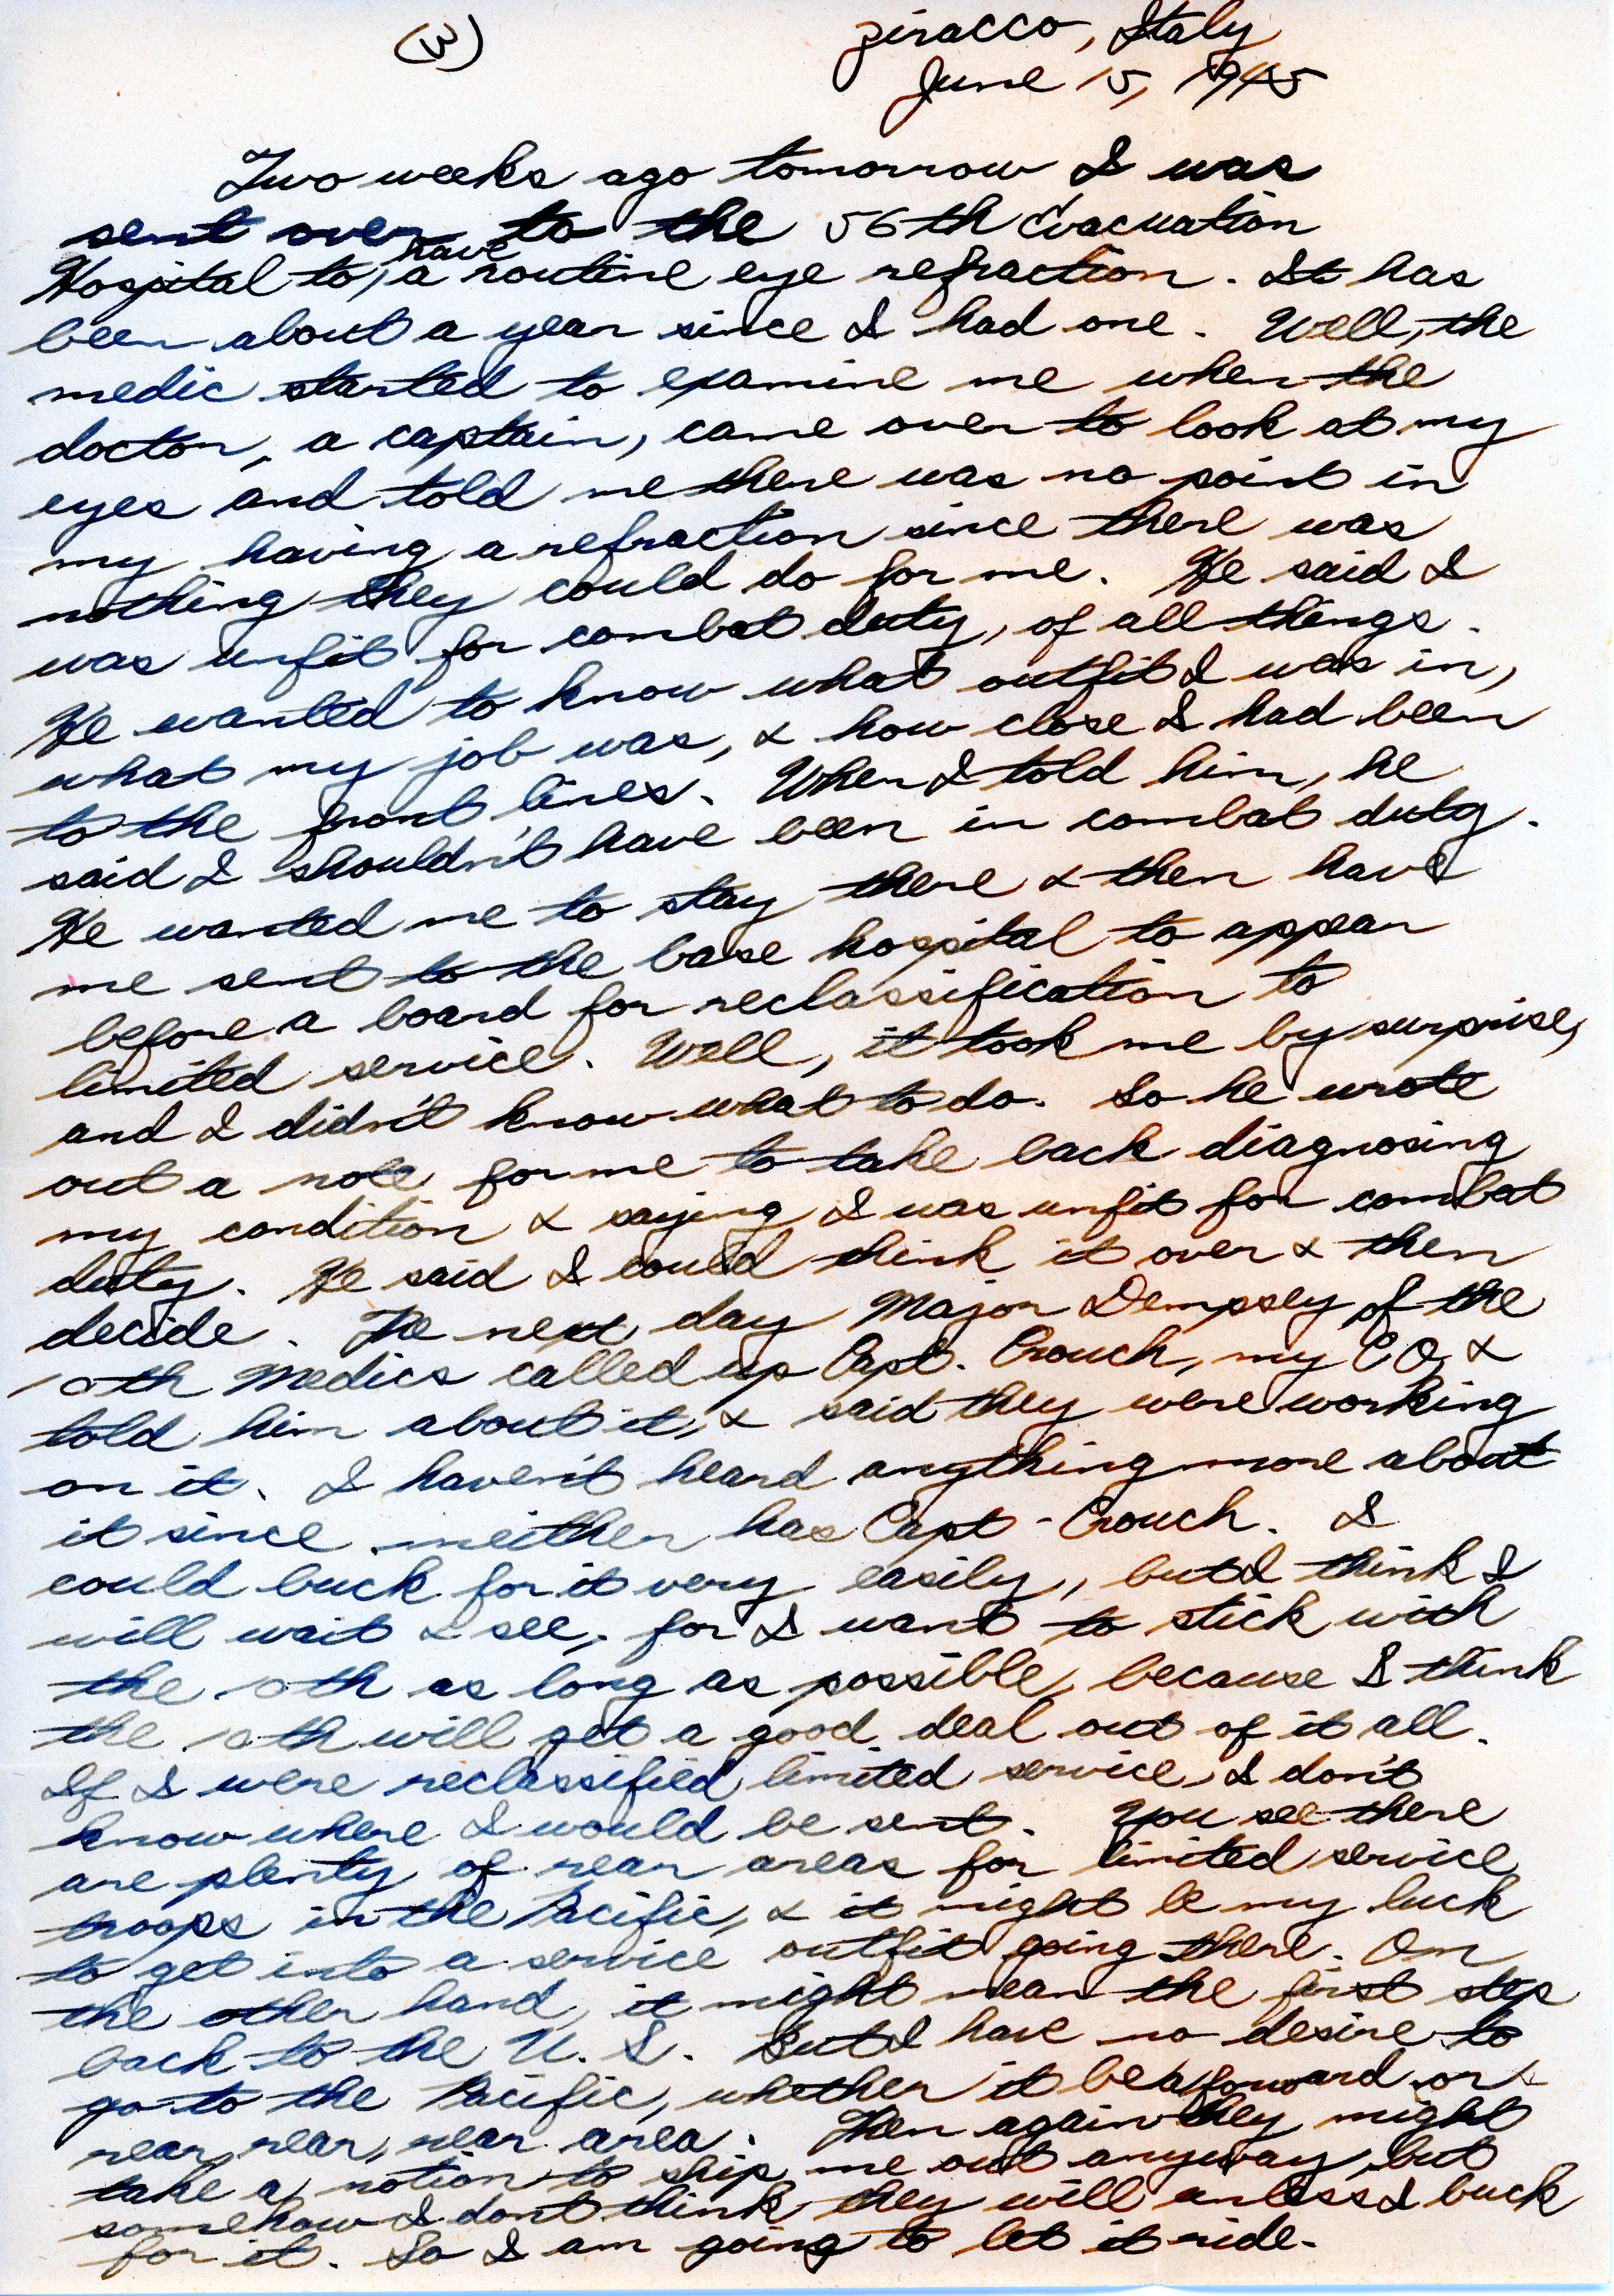 (3)
Ziracco, Italy
June 15, 1945
Two weeks ago tomorrow I was
sent over to the 56th Evacuation
Hospital to have a routine eye refraction. It has
been about a year since I had one. Well, the
medic started to examine me when the
doctor, a captain, came over to look at my
eyes and told me there was no point in
my having a refraction since there was
nothing they could do for me. He said I
was unfit for combat duty, of all things.
He wanted to know what outfit I was in,
what my job was, & how close I had been
to the front lines. When I told him, he
said I shouldn't have been in combat duty.
He wanted me to stay there & then have
me sent to the base hospital to appear
before a board for reclassification to
limited service. Well, it took me by surprise,
and I didn't know what to do. So he wrote
out a note for me to take back diagnosing
my condition & saying I was unfit for combat
duty. He said I could think it over & then
decide. The next day Major Dempsey of the
10th Medics called up Capt. Crouch, my CO, &
told him about it, & said they were working
on it. I haven't heard anything more about
it since, neither has Capt. Crouch. I
could buck for it very easily, but I think I
will wait & see, for I want to stick with
the 10th as long as possible, because I think
the 10th will get a good deal out of it all.
If I were reclassified limited service, I don't
know where I would be sent. You see there
are plenty of rear areas for limited service
troops in the Pacific, & it might be my luck
to get into a service outfit going there. On
the other hand, it might mean the first step
back to the U. S. But I have no desire to
go to the Pacific, whether it be a forward or
rear, rear, rear area. Then again they might
take a notion to ship me out anyway, but
somehow I don't think they will unless I buck
for it. So I am going to let it ride.